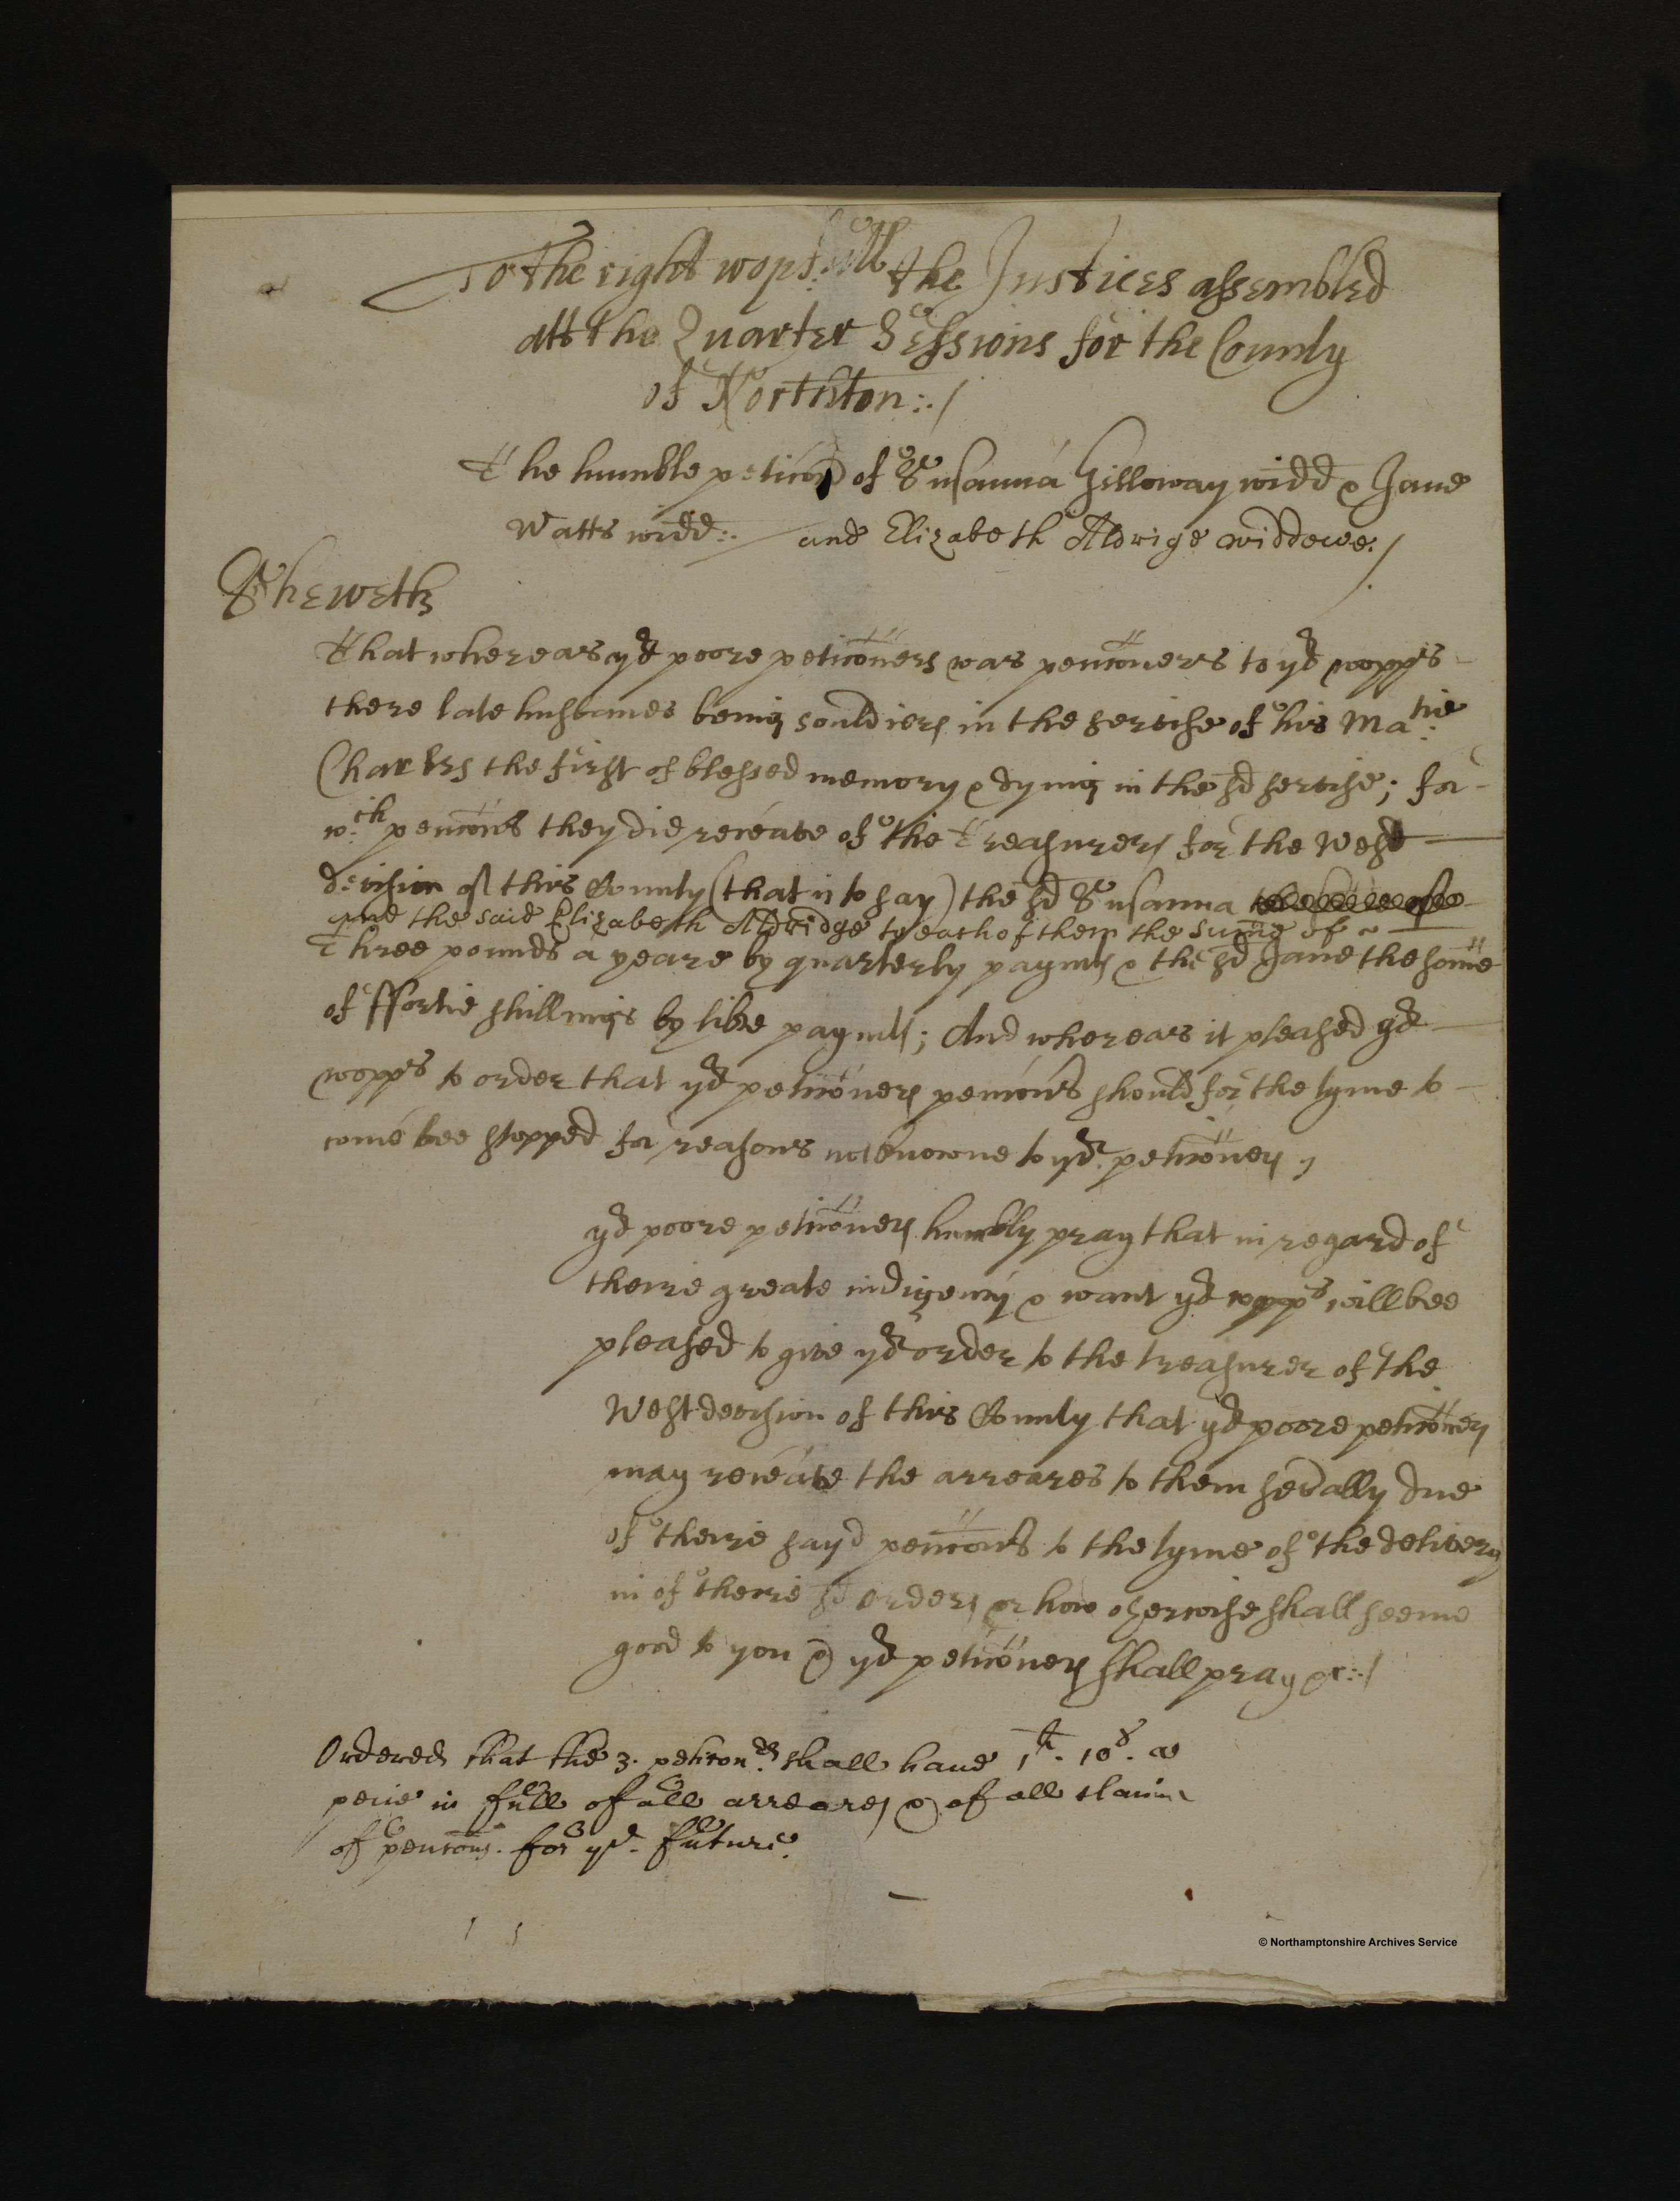 To the right wop:full the Justices assembled
att the Quarter Sessions for the County
of Northton:./
The humble peticon of Susanna Gilloway widd & Jane
Watts widd:. and Elizabeth Aldrige widdowe./
Sheweth
That whereas yr poore peticoners was pencioners to yr wopps
there late husbandes being souldiers in the servise of his Matie:
Charles the first of blessed memory & dying in the sd servise; for
wch pencons they did receave of the Treasurers for the West
devision of this County (that is to say) the sd Susanna
and the said Elizabeth Aldridge to each of them the sume of
Three pounds a yeare by quarterly paymts & the sd Jane the some
of ffortie shillings by like paymts; And whereas it pleased yr
wopps to order that yr peticoners pencons should for the tyme to
come bee stopped for reasons not knowne to yr peticoners
yr poore peticoners humbly pray that in regard of
theire greate indigency & want yr wopps will bee
pleased to give yr order to the treasurer of the
West devision of this County that yr poore peticoners
may receave the arreares to them sevally due
of theire sayd pencons to the tyme of the delivery
in of theire sd orders or how otherwise shall seeme
good to you & yr peticoners shall pray &c:./
Ordered that the 3. peticonrs shall have 1li. 10s. a
peice in full of all arreares & of all claim
of pencons. for ye. future.
© Northamptonshire Archives Service